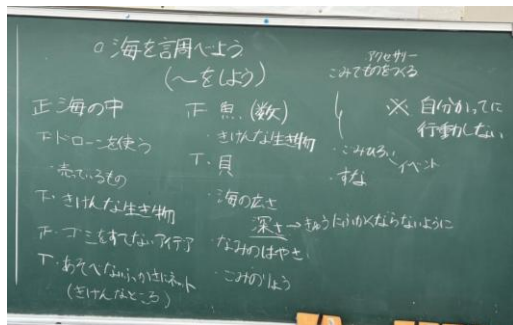 ○海を調べよう
(〜をしよう)
正 海の中
下 ドローンを使う
・売っているもの
下・きけんな生き物
正・ゴミをすてないアイデア
下・あそべないふかさにネット
(きけんなところ)
正・魚(数)
・きけんな生き物
丅・貝
・海の広さ
深さ→きゅうにふかくならないように
・なみのはやさ
・ごみのりょう
アクセサリー
ごみでものをつくる
・ごみひろい
イベント
・すな
※ 自分かってに
行動しない